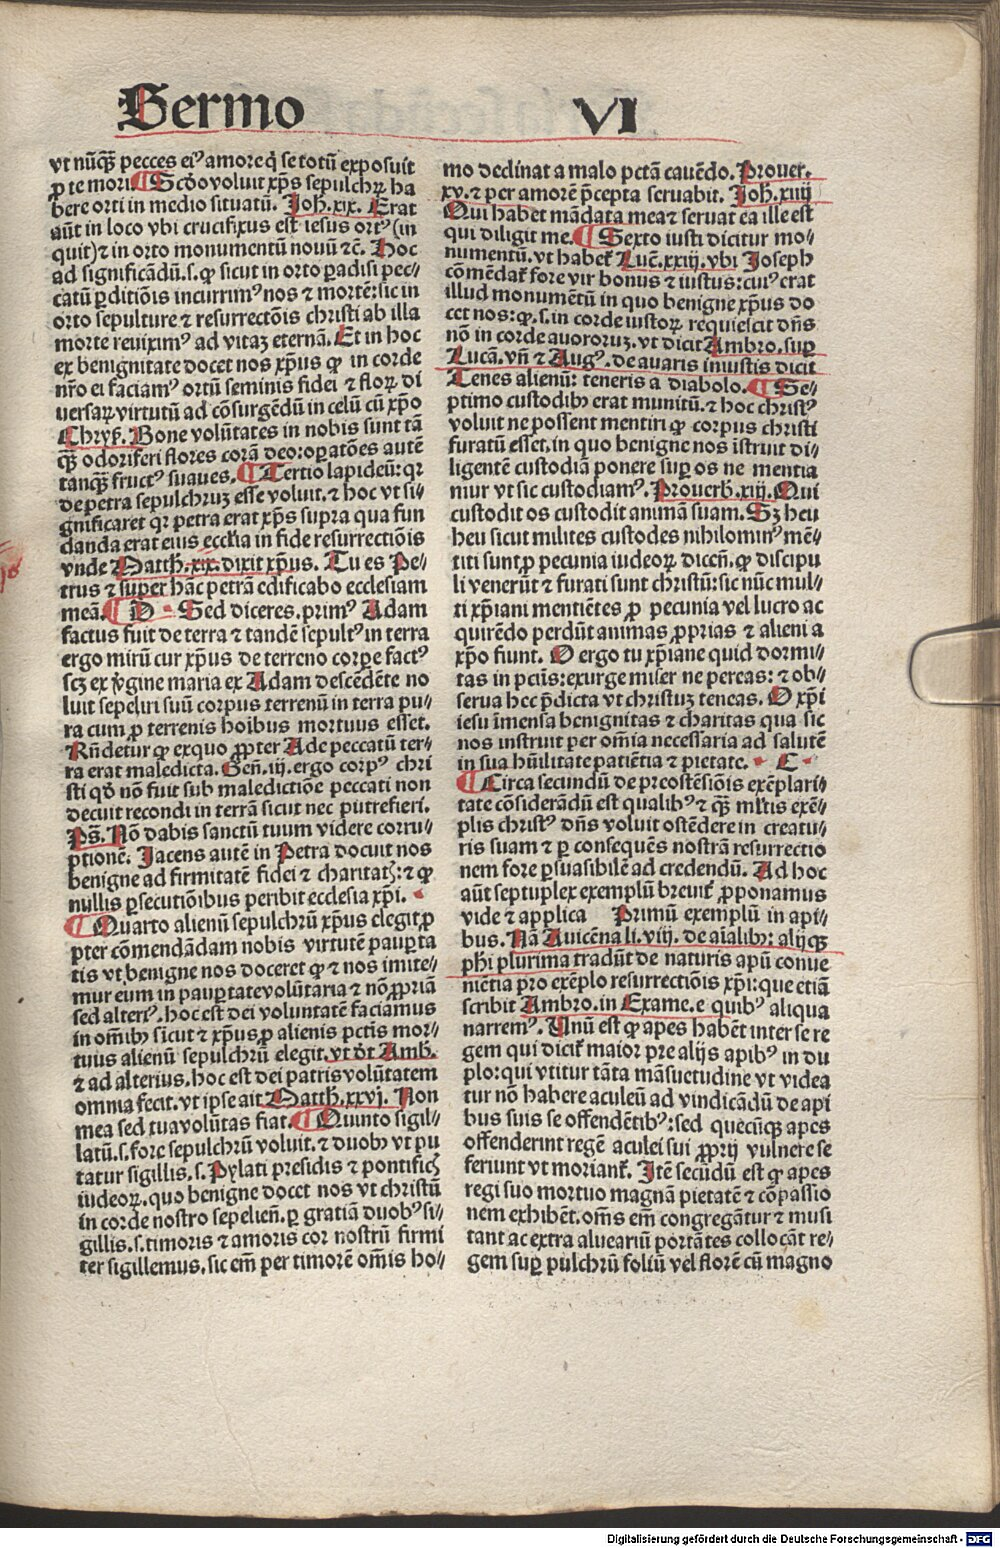 Sermo VI
vt nūq̄ȝ pecces eiꝰ amore q̇ se totū exposuit
ꝓ te mori. Scḋo voluit xp̄s sepulchrꝝ ha
bere orti in medio situatū. Joh̄. xix. Erat
aūt in loco vbi crucifixus est iesus ortꝰ (in
quit) ⁊ in orto monumentū nouū ⁊c̄. Hoc
ad significādū .s. ꝙ sicut in orto ꝑadisi pec⸗
catū ꝑditiōis incurrimꝰ nos ⁊ mortē: sic in
orto sepulture ⁊ resurrectōis christi ab illa
morte reuiximꝰ ad vitaȝ eternā. Et in hoc
ex benignitate docet nos xp̄us ꝙ in corde
nr̄o ei faciamꝰ ortū seminis fidei ⁊ florꝝ di
uersaꝝ virtutū ad cōsurgēdū in celū cū xp̄o
Chryſ. Bone volūtates in nobis sunt tā
q̄ȝ odoriferi flores corā deo: oꝑatōes autē
tanq̄ȝ fructꝰ suaues. Tertio lapideū: qꝛ
de petra sepulchruȝ esse voluit. ⁊ hoc vt si⸗
gnificaret qꝛ petra erat xp̄s supra qua fun
danda erat eius eccl̄ia in fide resurrectiōis
vnde Matth̄. xix. dixit xp̄us. Tu es Pe⸗
trus ⁊ super hāc petrā edificabo ecclesiam
meā. D Sed diceres. primꝰ Adam
factus fuit de terra ⁊ tandē sepultꝰ in terra
ergo mirū cur xp̄us de terreno corꝑe factꝰ
scȝ ex v̇gine maria ex Adam descēdēte no
luit sepeliri suū corpus terrenū in terra pu⸗
ra cum ꝓ terrenis hoībus mortuus esset.
Rn̄detur ꝙ exquo ꝓpter Ade peccatū ter⸗
ra erat maledicta. Gen̄. iij. ergo corpꝰ chri
sti qḋ nō fuit sub maledictiōe peccati non
decuit recondi in terrā sicut nec putrefieri.
Ps̄. Nō dabis sanctū tuum videre corru⸗
ptionē. Jacens autē in Petra docuit nos
benigne ad firmitatē fidei ⁊ charitatꝭ: ⁊ ꝙ
nullis ꝑsecutiōibus peribit ecclesia xp̄i.
Quarto alienū sepulchrū xp̄us elegit ꝓ
pter cōmendādam nobis virtutē pauꝑta
tis vt benigne nos doceret ꝙ ⁊ nos imite⸗
mur eum in pauꝑtate volūtaria ⁊ nō ꝓpriā
sed alteriꝰ. hoc est dei voluntatē faciamus
in omībꝫ sicut ⁊ xp̄us ꝓ alienis pctīs mor⸗
tuus alienū sepulchrū elegit. vt dr̄t Amb̄.
⁊ ad alterius. hoc est dei patris volūtatem
omnia fecit. vt ipse ait Matth̄. xxvj. Non
mea sed tua volūtas fiat. Quinto sigil⸗
latū .s. fore sepulchrū voluit. ⁊ duobꝫ vt pu
tatur sigillis .s. Pylati presidis ⁊ pontificꝭ
iudeoꝝ. quo benigne docet nos vt christū
in corde nostro sepelien̄. ꝑ gratiā duobꝰ si⸗
gillis .s. timoris ⁊ amoris cor nostrū firmi
ter sigillemus. sic em̄ per timorē om̄is ho⸗
mo declinat a malo pctā cauēdo. Prouer.
xv. ⁊ per amorē p̄cepta seruabit. Joh̄. xiiij
Qui habet mādata mea ⁊ seruat ea ille est
qui diligit me. Sexto iusti dicitur mo⸗
numentū. vt habet᷑ Luc̄. xxiij. vbi Joseph
cōmēdat᷑ fore vir bonus ⁊ iustus: cuiꝰ erat
illud monumētū in quo benigne xp̄us do
cet nos: ꝙ .s. in corde iustoꝝ requiescit dn̄s
nō in corde auororuȝ. vt dicit Ambro. suꝑ
Lucā. vn̄ ⁊ Augꝰ. de auaris iniustis dicit
Tenes alienū: teneris a diabolo. Se⸗
ptimo custodibꝫ erat munitū. ⁊ hoc christꝰ
voluit ne possent mentiri ꝙ corpus christi
furatū esset. in quo benigne nos īstruit di⸗
ligentē custodiā ponere suꝑ os ne mentia
mur vt sic custodiamꝰ. Prouerb̄. xiij. Qui
custodit os custodit animā suam. Sȝ heu
heu sicut milites custodes nihilominꝰ mē⸗
titi sunt ꝓ pecunia iudeoꝝ diccn̄. ꝙ discipu
li venerūt ⁊ furati sunt christū: sic nūc mul⸗
ti xp̄iani mentiētes ꝓ pecunia vel lucro ac
quirēdo perdūt animas ꝓprias ⁊ alieni a
xp̄o fiunt. O ergo tu xp̄iane quid dormi⸗
tas in pctīs: exurge miser ne pereas: ⁊ ob⸗
serua hec p̄dicta vt christuȝ teneas. O xp̄i
iesu īmensa benignitas ⁊ charitas qua sic
nos instruit per om̄ia necessaria ad salutē
in sua hūilitate patiētia ⁊ pietate. E
Circa secundū de preostēsiōis exēplari⸗
tate cōsiderādū est qualibꝰ ⁊ q̄ȝ ml̄tis exē⸗
plis christꝰ dn̄s voluit ostēdere in creatu⸗
ris suam ⁊ ꝑ consequēs nostrā resurrectio
nem fore ꝑsuasibilē ad credendū. Ad hoc
aūt septuplex exemplū breuit᷑ ꝓponamus
vide ⁊ applica Primū exemplū in api⸗
bus. Nā Auicēna li. viij. de aīalibꝫ: alijqꝫ
phī plurima tradūt de naturis apū conue
niētia pro exēplo resurrectiōis xp̄i: que etiā
scribit Ambro. in Exame. e quibꝰ aliqua
narremꝰ. Unū est ꝙ apes habēt inter se re
gem qui dicit᷑ maior pre alijs apibꝰ in du
plo: qui vtitur tāta māsuetudine vt videa
tur nō habere aculeū ad vindicādū de api
bus suis se offendētibꝰ: sed quecūqꝫ apes
offenderint regē aculei sui ꝓprij vulnere se
feriunt vt moriant᷑. Itē secūdū est ꝙ apes
regi suo mortuo magnā pietatē ⁊ cōpassio
nem exhibēt. om̄s em̄ congregātur ⁊ musi
tant ac extra aluearium portātes collocāt re⸗
gem suꝑ pulchrū foliū vel florē cū magno
Digitalisierung gefördert durch die Deutsche Forschungsgemeinschaft - DFG